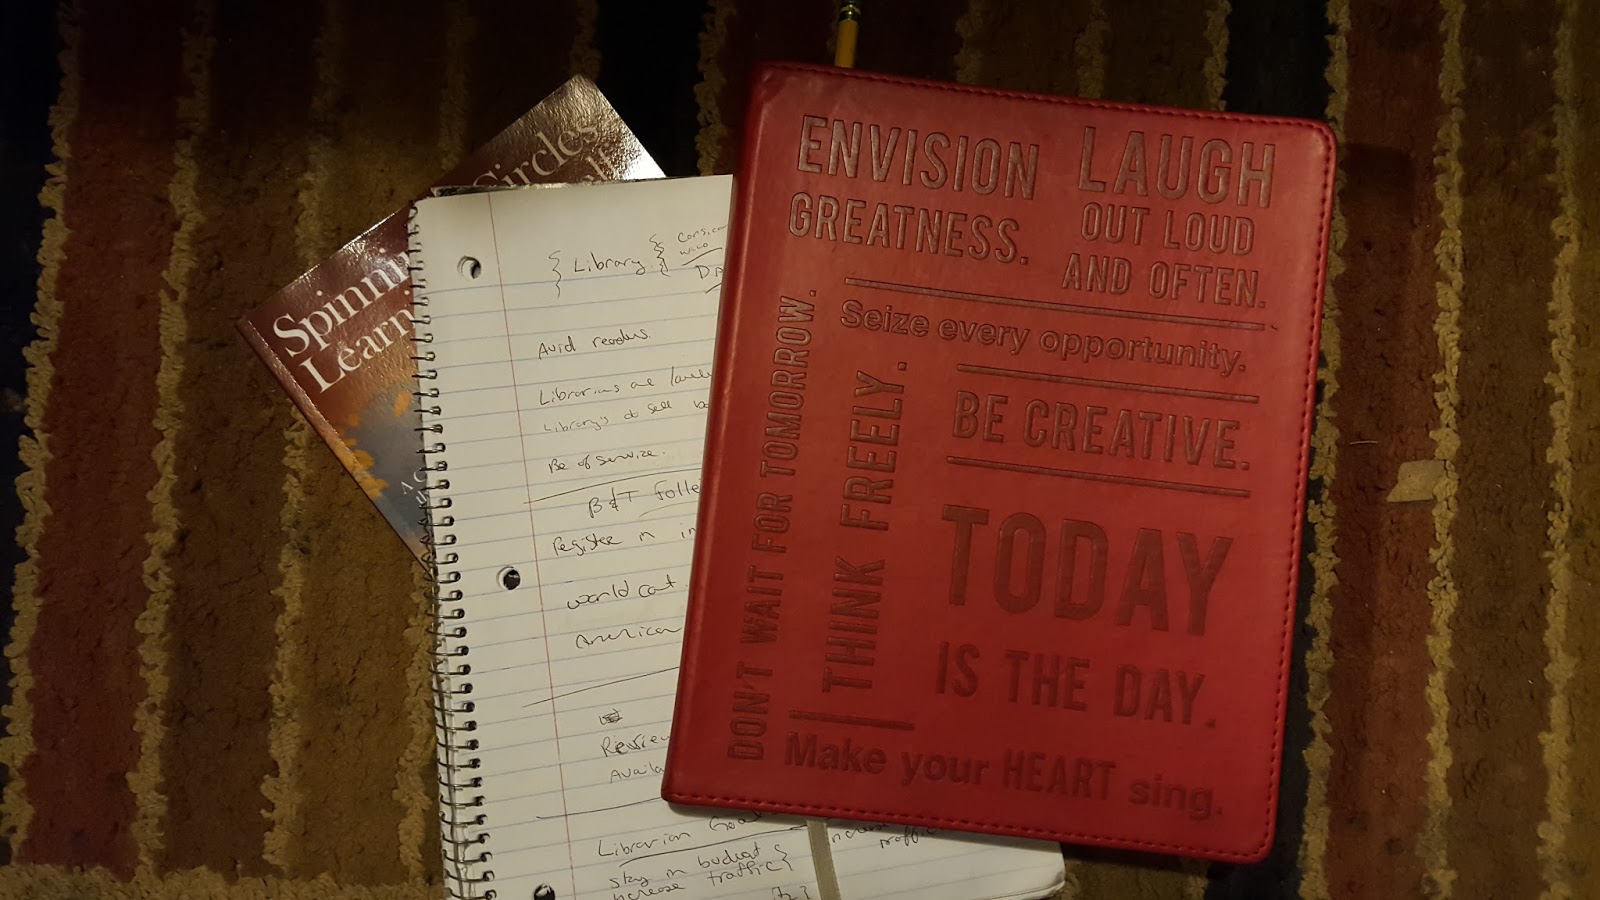 Circles
Spinni
Learn
{ Library {
DA
Avid readers.
Librarians are
Library's do sell
Be of service.
B&T Folle
Register in in
world cat.
American
Review
Availa
Librarian Goal
stay in budget
increase traffic
increase
traffic
ENVISION
GREATNESS.
LAUGH
OUT LOUD
AND OFTEN.
Seize every opportunity.
DON'T WAIT FOR TOMORROW.
THINK FREELY.
BE CREATIVE.
TODAY
IS THE DAY.
Make your HEART sing.